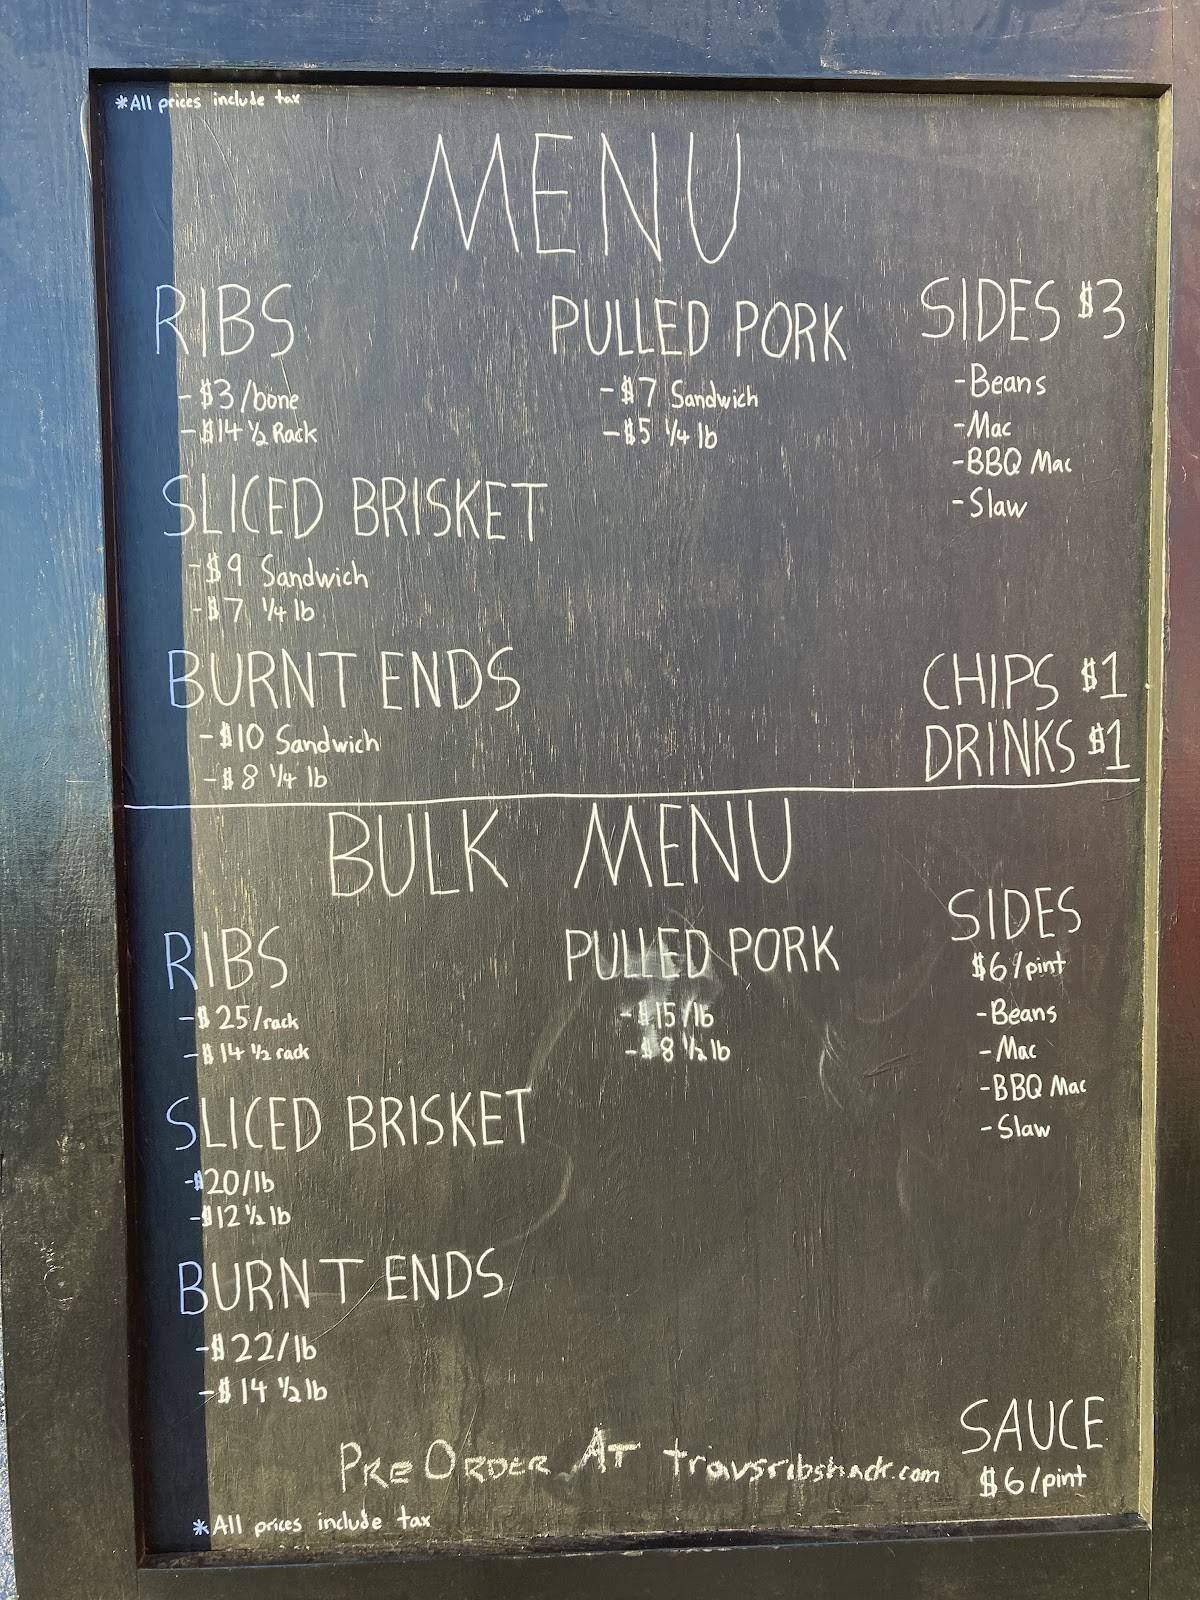 *All prices include tax
MENU
RIBS
-$3/bone
-$14 ½ Rack
PULLED PORK
-$7 Sandwich
-$5 ¼ lb
SIDES $3
-Beans
-Mac
-BBQ Mac
-Slaw
SLICED BRISKET
-$9 Sandwich
-$7 ¼ lb
BURNT ENDS
-$10 Sandwich
-$8 ¼ lb
CHIPS $1
DRINKS $1
BULK MENU
RIBS
-$25/rack
-$14 ½ rack
PULLED PORK
-$15/lb
-$8 ½ lb
SIDES
$6/pint
-Beans
-Mac
-BBQ Mac
-Slaw
SLICED BRISKET
-$20/lb
-$12 ½ lb
BURNT ENDS
-$22/lb
-$14 ½ lb
SAUCE
$6/pint
PRE ORDER AT travsribshack.com
*All prices include tax